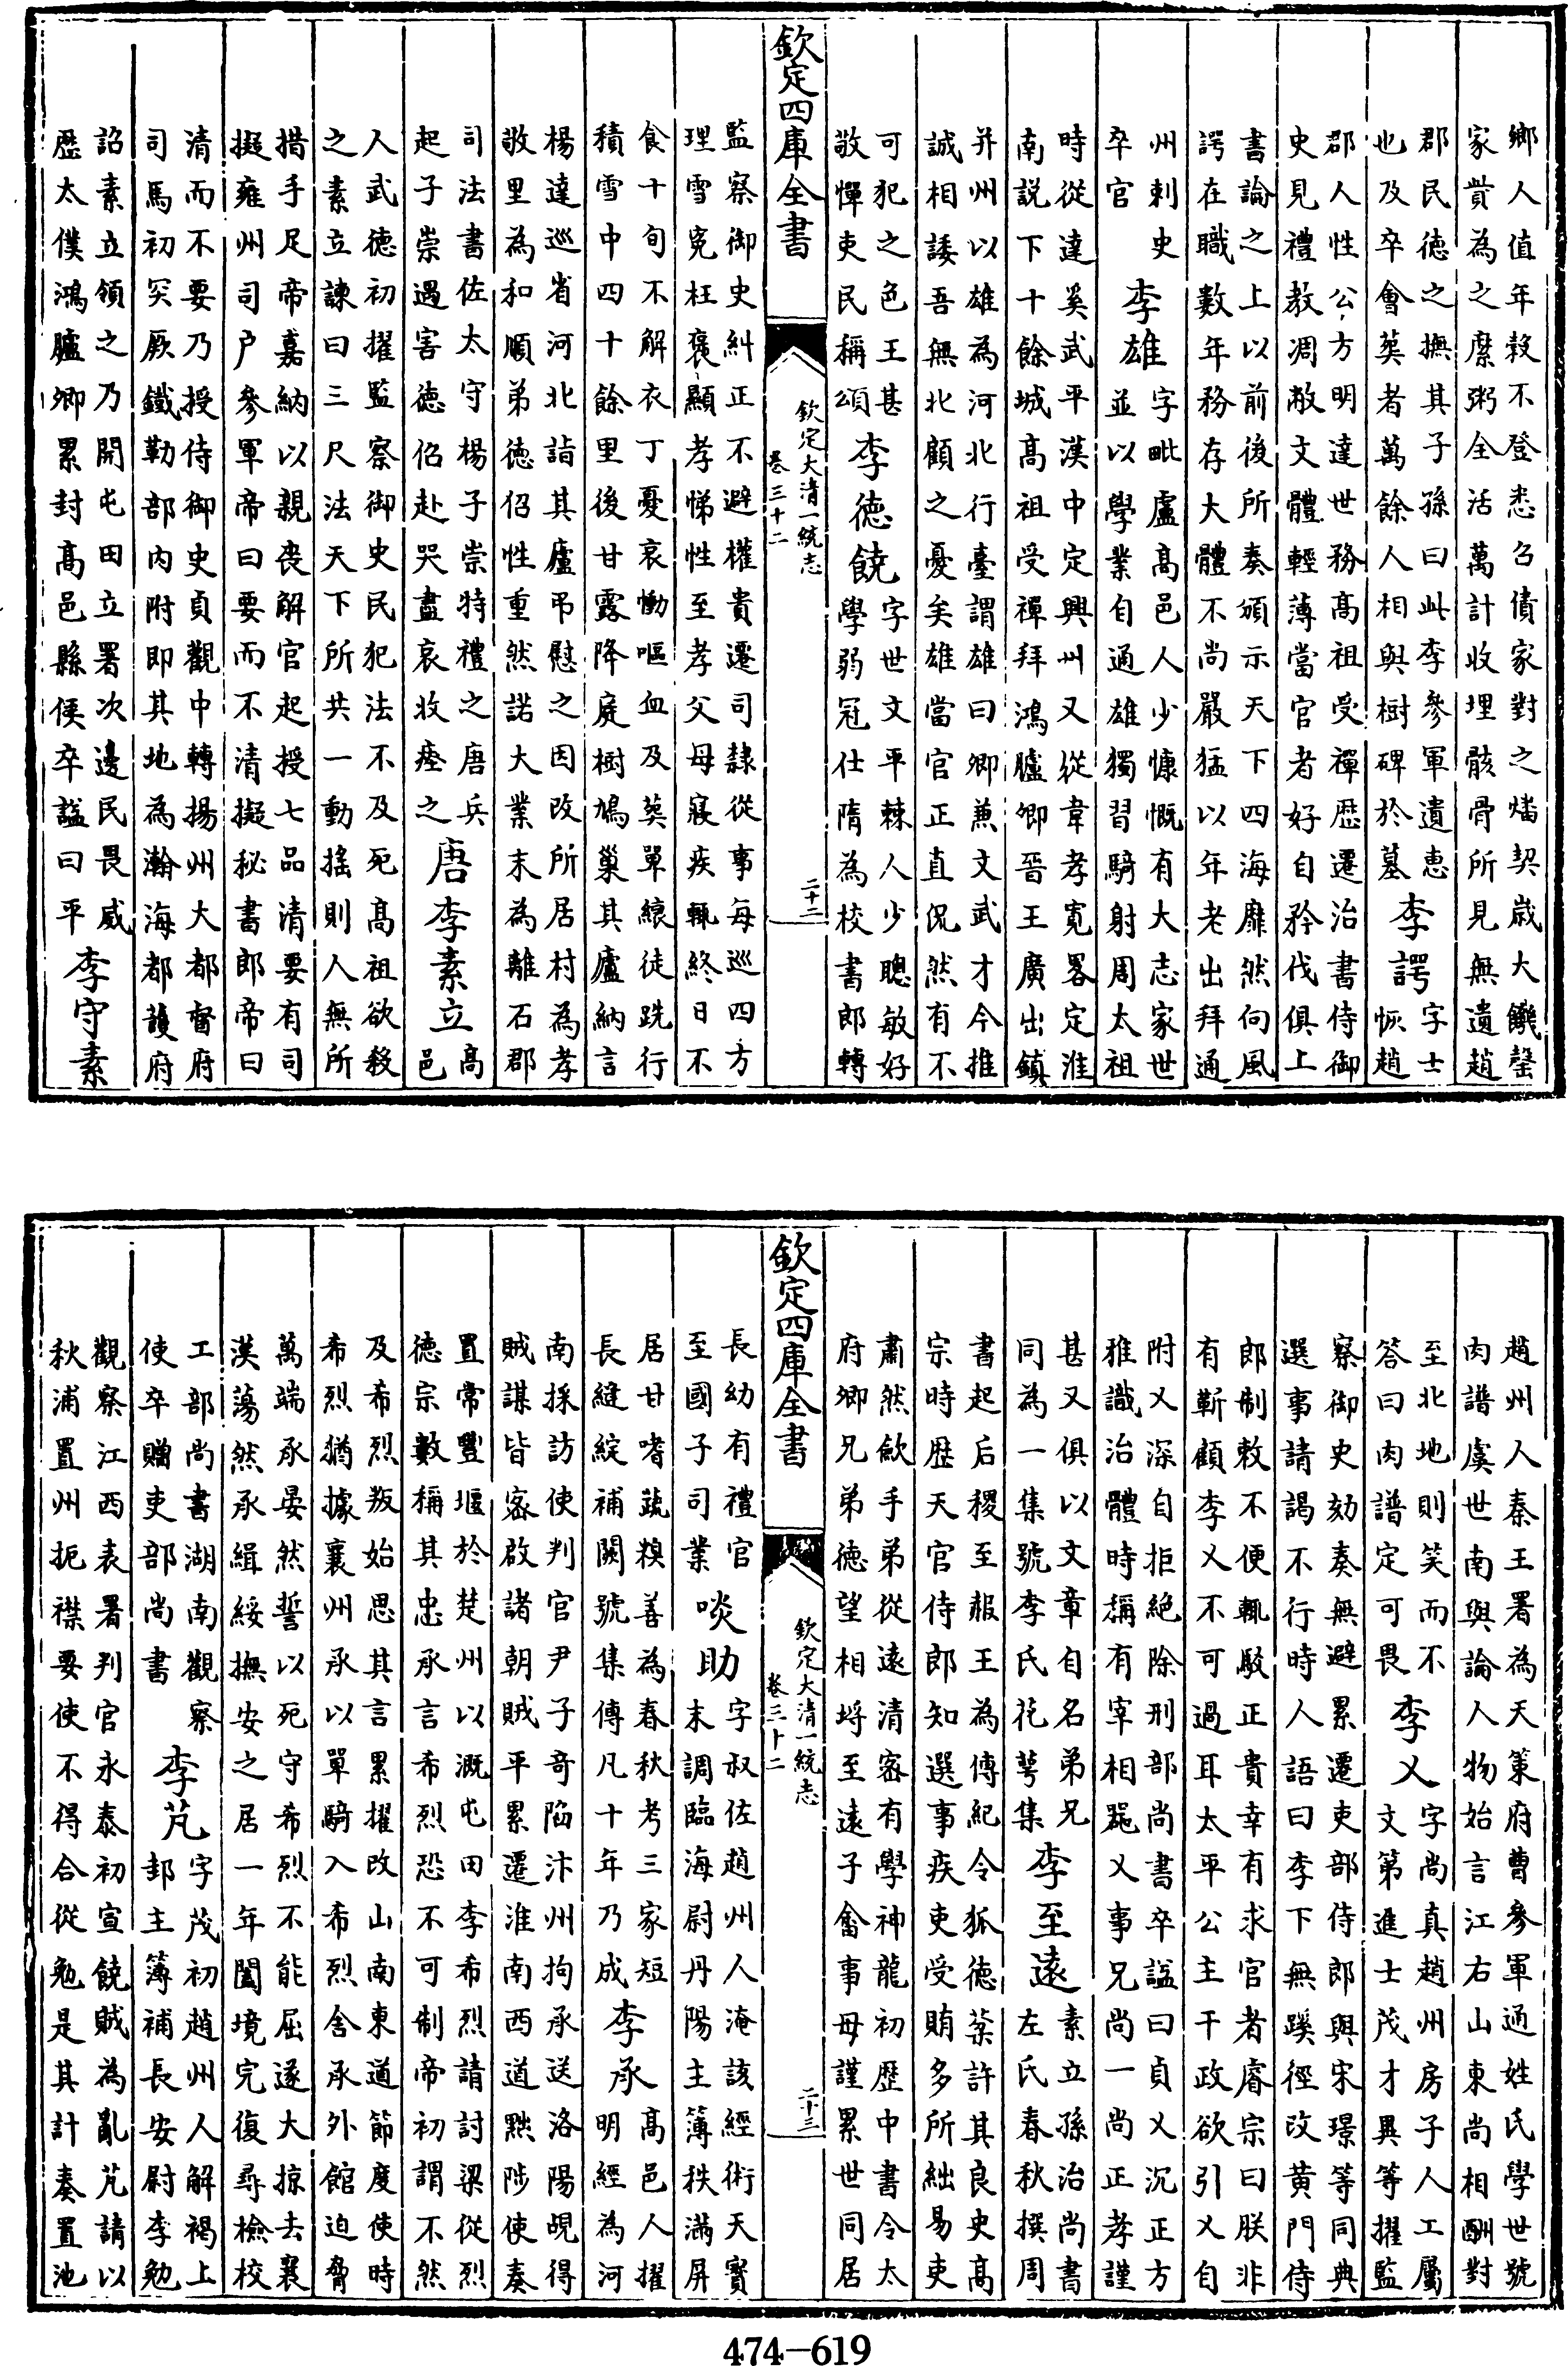 鄉人值年穀不登悉召債家對之燔契歳大饑罄
家貲為之糜粥全活萬計收埋骸骨所見無遺趙
郡民徳之撫其子孫曰此李參軍遺惠
也及卒會𦵏者萬餘人相與樹碑於墓
李諤
字士
恢趙
郡人性公方明達世務髙祖受禪歴遷治書侍御
史見禮教凋敝文體輕薄當官者好自矜伐俱上
書論之上以前後所奏頒示天下四海靡然向風
諤在職數年務存大體不尚嚴猛以年老出拜通
州刺史
卒官
李雄
字毗盧髙邑人少慷慨有大志家世
並以學業自通雄獨習騎射周太祖
時從達奚武平漢中定興州又從韋孝寛畧定淮
南説下十餘城髙祖受禪拜鴻臚卿晉王廣出鎮
并州以雄為河北行臺謂雄曰卿兼文武才今推
誠相諉吾無北顧之憂矣雄當官正直侃然有不
可犯之色王甚
敬憚吏民稱頌
李徳饒
字世文平棘人少聰敏好
學弱冠仕隋為校書郎轉
欽定四庫全書
欽定大清一統志
卷三十二
二十二
監察御史糾正不避權貴遷司隸從事每巡四方
理雪寃枉褒顯孝悌性至孝父母寢疾輒終日不
食十旬不解衣丁憂哀慟嘔血及𦵏單縗徒跣行
積雪中四十餘里後甘露降庭樹鳩巢其廬納言
楊達巡省河北詣其廬弔慰之因改所居村為孝
敬里為和順弟徳侣性重然諾大業末為離石郡
司法書佐太守楊子崇特禮之唐兵
起子崇遇害徳侣赴哭盡哀收瘞之
唐李素立
髙
邑
人武徳初擢監察御史民犯法不及死髙祖欲殺
之素立諫曰三尺法天下所共一動搖則人無所
措手足帝嘉納以親喪解官起授七品清要有司
擬雍州司户參軍帝曰要而不清擬秘書郎帝曰
清而不要乃授侍御史貞觀中轉揚州大都督府
司馬初突厥鐵勒部内附即其地為瀚海都䕶府
詔素立領之乃開屯田立署次邊民畏威
歴太僕鴻臚卿累封髙邑縣侯卒諡曰平
李守素
趙州人秦王署為天策府曹參軍通姓氏學世號
肉譜虞世南與論人物始言江右山東尚相酬對
至北地則笑而不
答曰肉譜定可畏
李乂
字尚真趙州房子人工屬
文第進士茂才異等擢監
察御史劾奏無避累遷吏部侍郎與宋璟等同典
選事請謁不行時人語曰李下無蹊徑改黄門侍
郎制敕不便輒駮正貴幸有求官者睿宗曰朕非
有靳顧李乂不可過耳太平公主干政欲引乂自
附乂深自拒絶除刑部尚書卒諡曰貞乂沉正方
雅識治體時稱有宰相器乂事兄尚一尚正孝謹
甚又俱以文章自名弟兄
同為一集號李氏花萼集
李至遠
素立孫治尚書
左氏春秋撰周
書起后稷至赧王為傳紀令狐徳棻許其良史髙
宗時歴天官侍郎知選事疾吏受賄多所絀易吏
肅然歛手弟從遠清密有學神龍初歴中書令太
府卿兄弟徳望相埓至遠子畬事母謹累世同居
欽定四庫全書
欽定大清一統志
卷三十二
二十三
長幼有禮官
至國子司業
啖助
字叔佐趙州人淹該經術天寳
末調臨海尉丹陽主簿秩滿屏
居甘嗜蔬糗善為春秋考三家短
長縫綻補闕號集傳凡十年乃成
李承
髙邑人擢
明經為河
南採訪使判官尹子奇陷汴州拘承送洛陽覘得
賊謀皆密啟諸朝賊平累遷淮南西道黜陟使奏
置常豐堰於楚州以溉屯田李希烈請討梁從烈
徳宗數稱其忠承言希烈恐不可制帝初謂不然
及希烈叛始思其言累擢改山南東道節度使時
希烈猶據襄州承以單騎入希烈舍承外館迫脅
萬端承晏然誓以死守希烈不能屈遂大掠去襄
漢蕩然承緝綏撫安之居一年闔境完復尋檢校
工部尚書湖南觀察
使卒贈吏部尚書
李芃
字茂初趙州人解褐上
邽主簿補長安尉李勉
觀察江西表署判官永泰初宣饒賊為亂芃請以
秋浦置州扼襟要使不得合從勉是其計奏置池
474-619